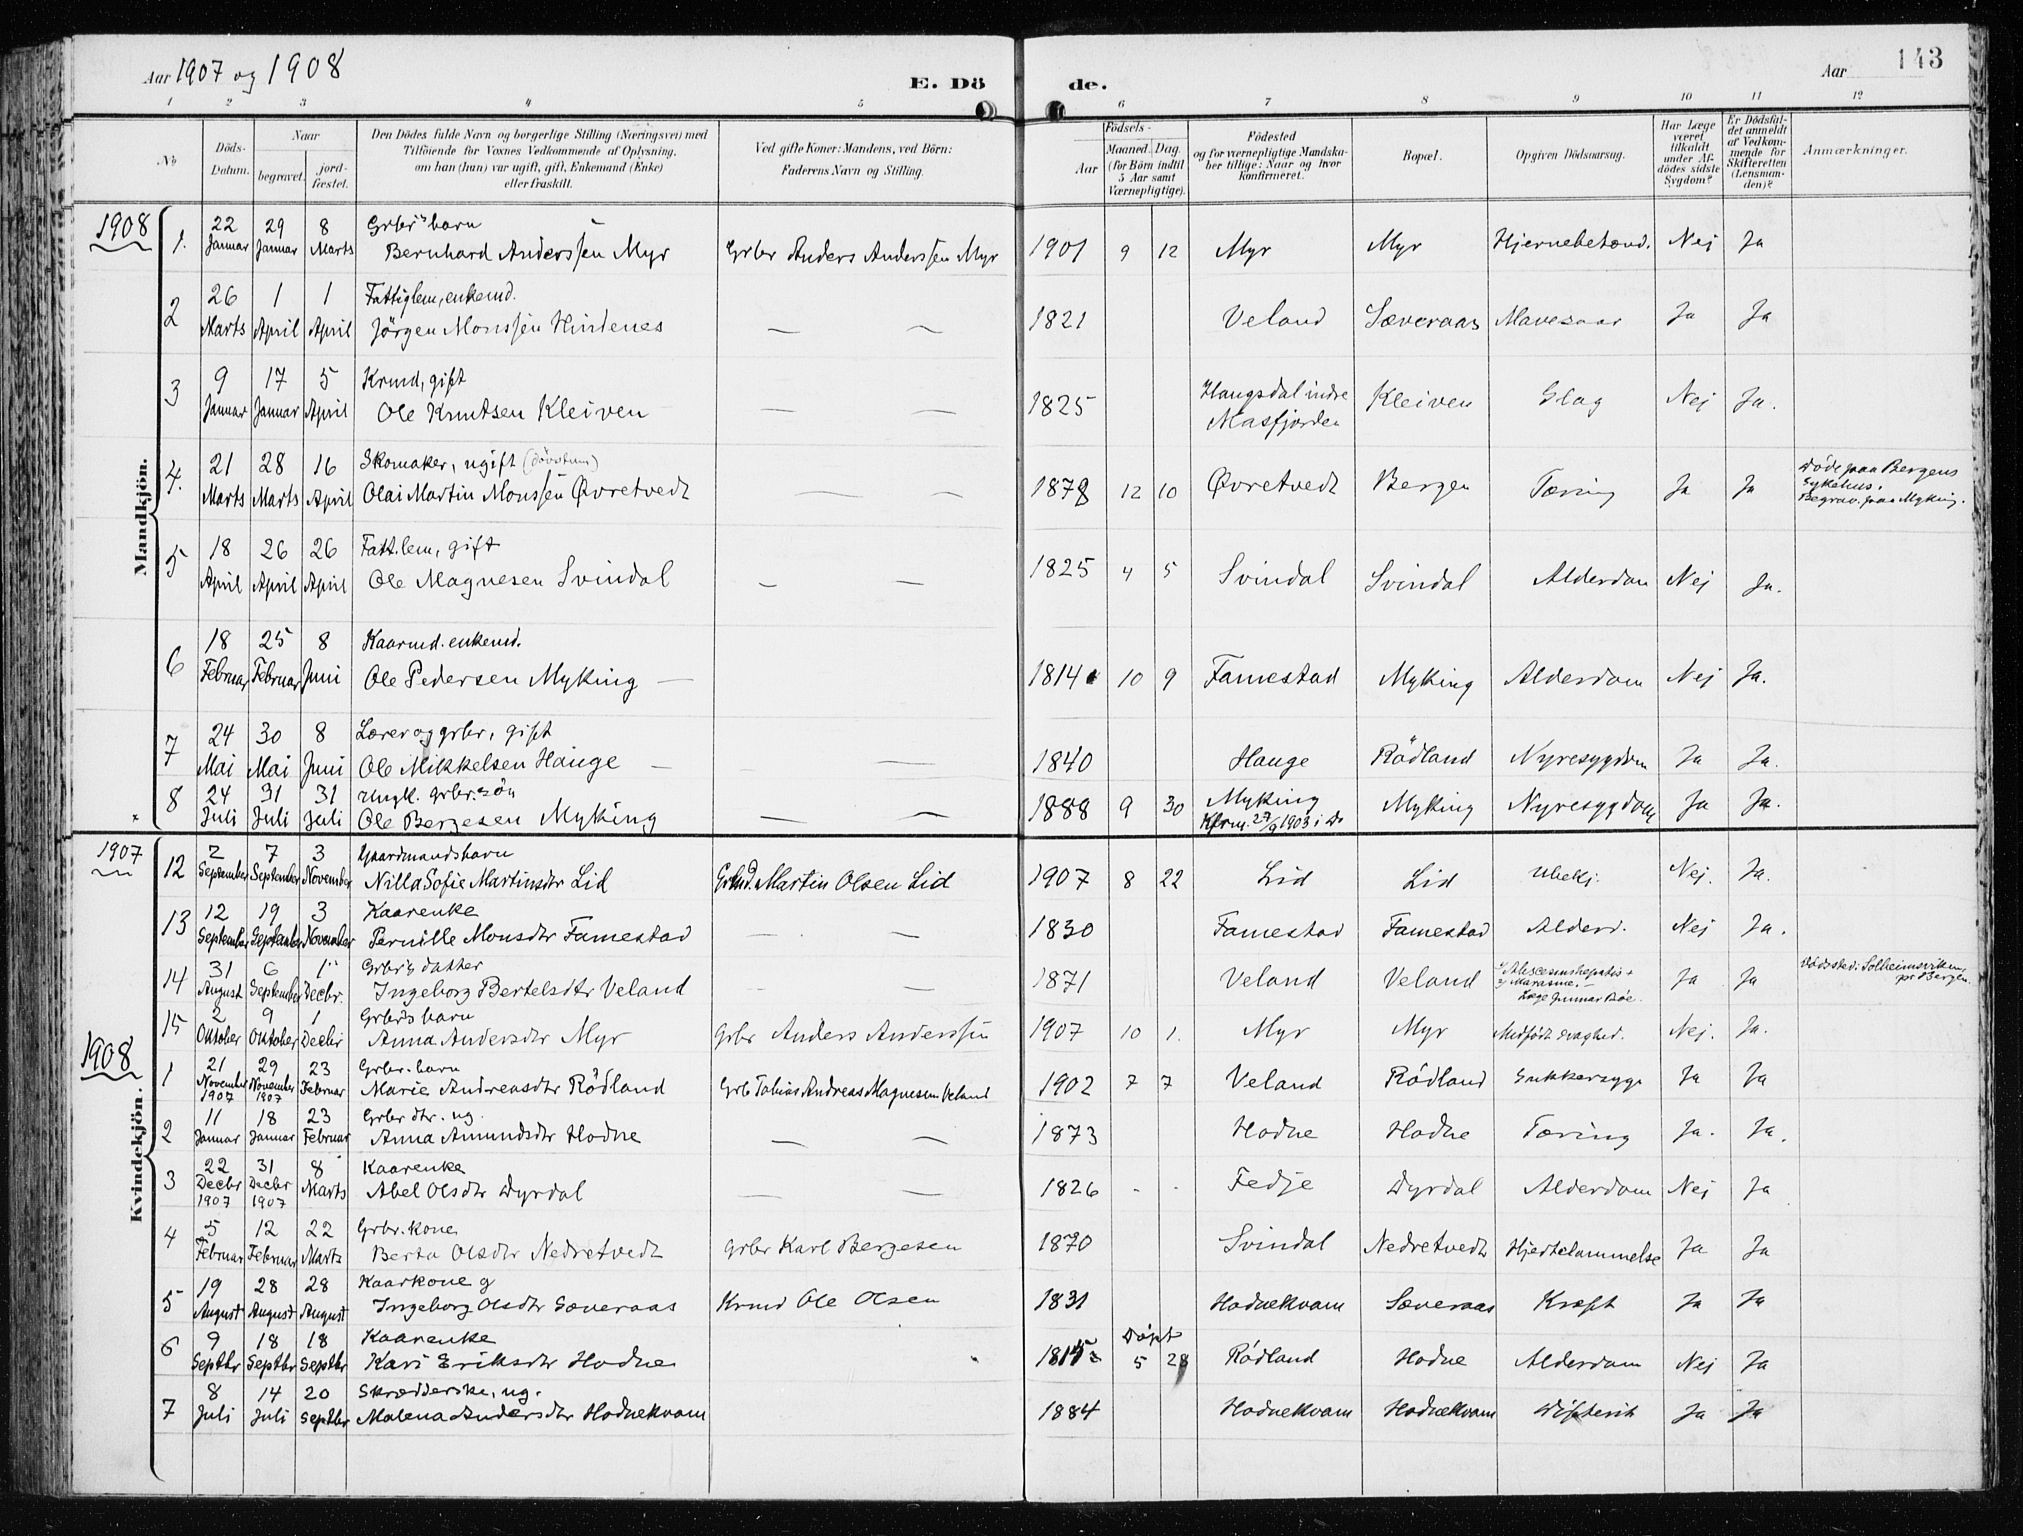 Aar 1907 og 1908 E. Dö de. Aar 143
1 2 3 4 5 6 7 8 9 10 11 12
No
Döds-Datum.
Naar
begravet. jord-fæstet.
Den Dödes fulde Navn og borgerlige Stilling (Næringsvei) med
Tilföiende for Voxnes Vedkommende af Oplysning,
om han (hun) var ugift, gift, Enkemand (Enke)
eller fraskilt.
Ved gifte Koner: Mandens, ved Börn:
Faderens Navn og Stilling.
Födsels-
Aar
Maaned. Dag.
(for Börn indtil
5 Aar samt
Værnepligtige).
Födested
og for værnepligtige Mandska-
ber tillige: Naar og hvor
konfirmeret.
Bopæl.
Opgiven Dödsaarsag.
Har Læge
været
tilkaldt
under Af-
dödes sidste
Sygdom?
Er Dödsfal-
det anmeldt
af Vedkom-
mende for
Skifteretten
(Lensman-
den)?
Anmærkninger.
Mandkjön.
1908
1. 22 Januar 29 Januar 8 Marts Grbr's barn
Bernhard Anderssen Myr Grbr Anders Anderssen Myr 1901 9 12 Myr Myr Hjernebetænd. Nej Ja
2 26 Marts 1 April 1 April Fattiglem, enkemd.
Jörgen Monssen Hindenes — — 1821 Veland Sæveraas Mavesaar Ja Ja
3 9 Januar 17 Januar 5 April Krmd, gift
Ole Knutsen Kleiven — — 1825 Haugsdal indre Masfjorden Kleiven Slag Nej Ja.
4. 21 Marts 28 Marts 16 April Skomaker, ugift (døvstum)
Olai Martin Monssen Øvretvedt — — 1878 12 10 Øvretvedt Bergen Tæring Ja Ja Døde paa Bergens
Sykehus.
Begrav. paa Myking.
5 18 April 26 April 26 April Fatt.lem, gift
Ole Magnesen Svindal — — 1825 4 5 Svindal Svindal Alderdom Nej Ja.
6 18 Februar 25 Februar 8 Juni Kaarmd. enkemd.
Ole Pedersen Myking — 1814 10 9 Famestad Myking Alderdom Nej Ja.
7 24 Mai 30 Mai 8 Juni Lærer og grbr, gift
Ole Mikkelsen Hauge — — 1840 Hauge Rödland Nyresygdom Ja Ja.
8 24 Juli 31 Juli 31 Juli Ungk. grbr. sön
Ole Bergesen Myking — — 1888 9 30 Myking
Kfrm. 27/9 1903 i Do Myking Nyresygdom Ja Ja.
Kvindekjön.
1907
12 2 September 7 September 3 November Gaardmandsbarn
Nilla Sofie Martinsdtr Lid Grmd. Martin Olsen Lid 1907 8 22 Lid Lid Ubekj. Nej. Ja.
13 12 September 19 September 3 November Kaarenke
Pernille Monsdtr Famestad — — 1830 Famestad Famestad Alderd. Nej Ja.
14 31 August 6 September 1 Decbr. Grbr's datter
Ingeborg Bertelsdtr Veland — — 1871 Veland Veland Abscessushepatis +
Marasme.
Læge Gunnar Bøe. Ja Ja Dødssted: Solheimsviken,
pr Bergen.
15 2 Oktober 9 Oktober 1 Decbr Grbr's barn
Anna Andersdtr Myr Grbr Anders Anderssen 1907 10 1. Myr Myr Medfödt svaghed. Nej. Ja.
1908
1 21 November 1907 29 November 1907 23 Februar Grbr. barn
Marie Andreasdtr Rödland Grb Tobias Andreas Magnesen Veland 1902 7 7 Veland Rödland Sukkersyge Ja Ja
2 11 Januar 18 Januar 23 Februar Grbr dtr. ug.
Anna Amundsdtr Hodne — — 1873 Hodne Hodne Tæring Ja. Ja.
3 22 Decbr 1907 31 Decbr 1907 8 Marts Kaarenke
Abel Olsdtr Dyrdal — — 1826 - - Fedje Dyrdal Alderdom Nej Ja
4 5 Februar 12 Februar 22 Marts Grbr. kone
Berta Olsdtr Nedretvedt Grbr Karl Bergesen 1870 Svindal Nedretvedt Hjertelammelse Ja Ja
5 19 August 28 August 28 August Kaarkone g
Ingeborg Olsdtr Sæveraas Krmd Ole Olsen 1831 Hodnekvam Sæveraas Kræft Ja Ja
6 9 Septbr 18 Septbr 18 Septbr Kaarenke
Kari Eriksdtr Hodne Døpt 5 28 Rödland Hodne Alderdom Nej Ja
7 8 Juli 14 Juli 20 Septbr Skrædderske, ug.
Malena Andersdtr Hodnekvam 1884 Hodnekvam Hodnekvam Difterit Ja Ja